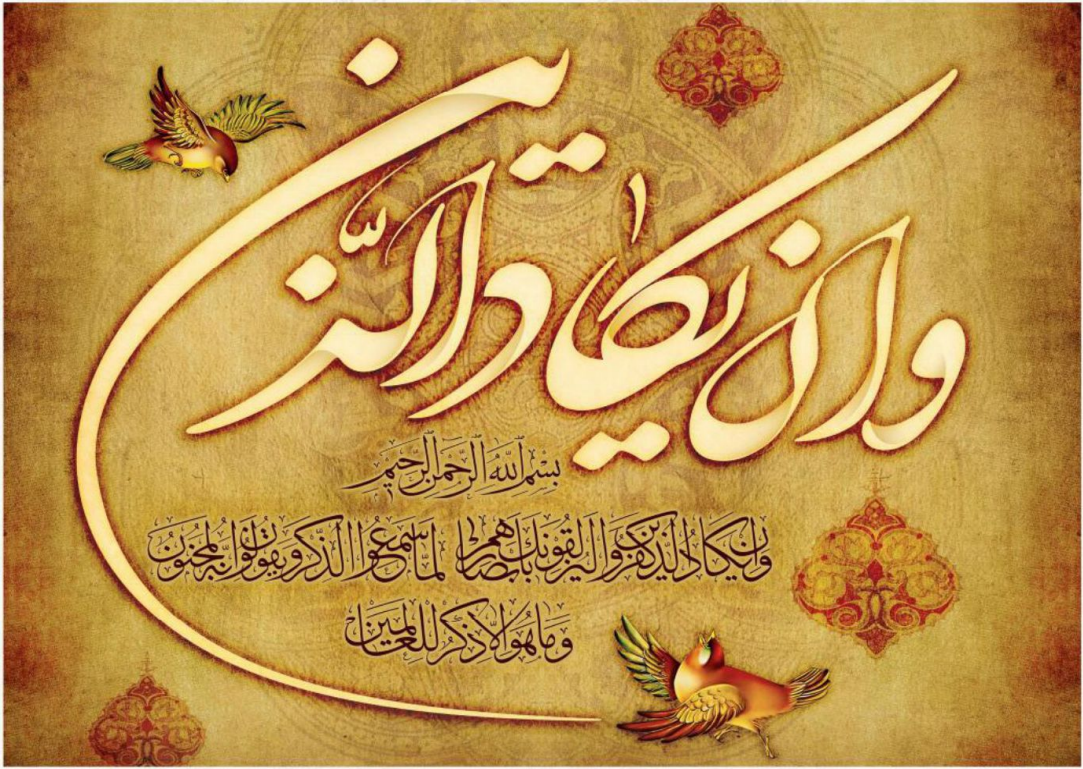 وان یکاد الذین
بِسْمِ اللّٰهِ الرَّحْمٰنِ الرَّحیمِ
وَاِنْ یَکادُ الَّذینَ کَفَرُوا لَیُزْلِقُونَکَ بِاَبْصارِهِمْ لَمّا سَمِعُوا الذِّکْرَ وَیَقُولُونَ اِنَّهُ لَمَجْنُونٌ
وَما هُوَ اِلّا ذِکْرٌ لِلْعالَمینَ